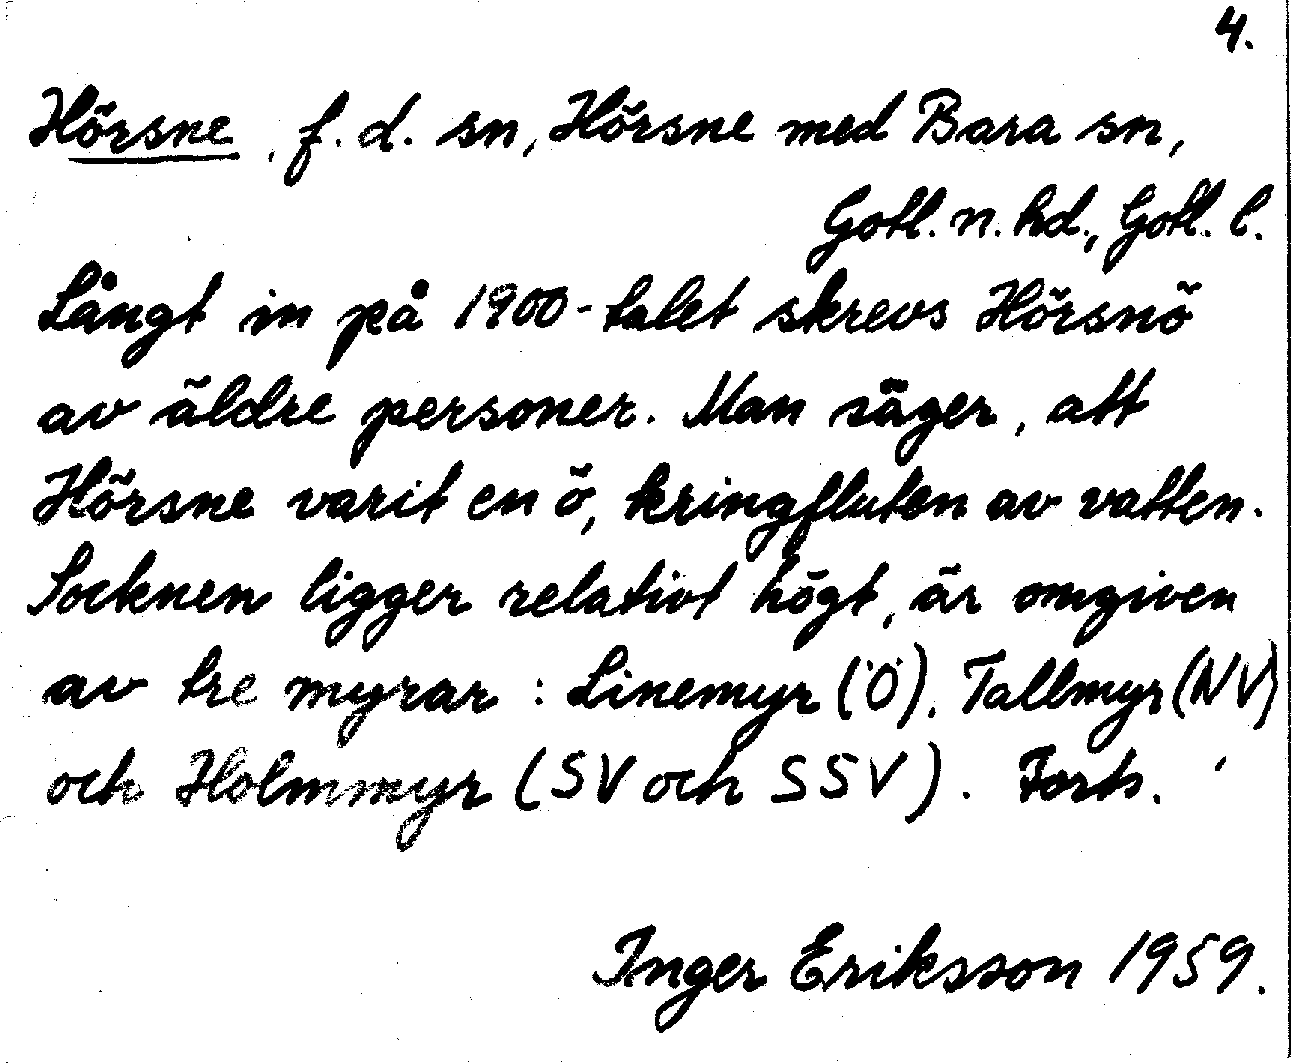 4.
Hörsne, f.d. sn, Hörsne med Bara sn,
Gotl. n. hd., Gotl. l.
Långt in på 1900-talet skrevs Hörsnö
av äldre personer. Man säger, att
Hörsne varit en ö, kringfluten av vatten.
Socknen ligger relativt högt, är omgiven
av tre myrar: Linemyr (Ö), Tallmyr (NV)
och Holmmyr (SV och SSV). Forts.
Inger Eriksson 1959.